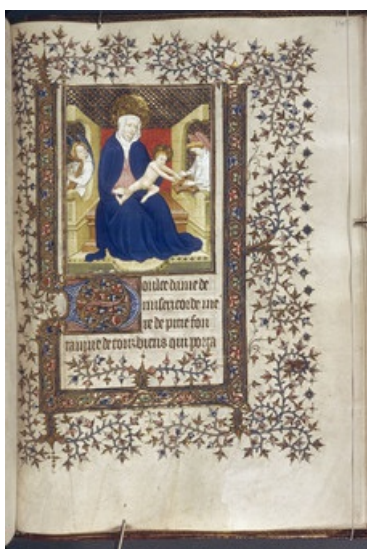 Doulce dame de
misericorde me
re de pitie fon
taine de tous biens qui porta